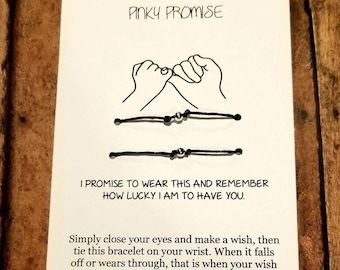 PINKY PROMISE
I PROMISE TO WEAR THIS AND REMEMBER
HOW LUCKY I AM TO HAVE YOU.
Simply close your eyes and make a wish, then
tie this bracelet on your wrist. When it falls
off or wears through, that is when your wish